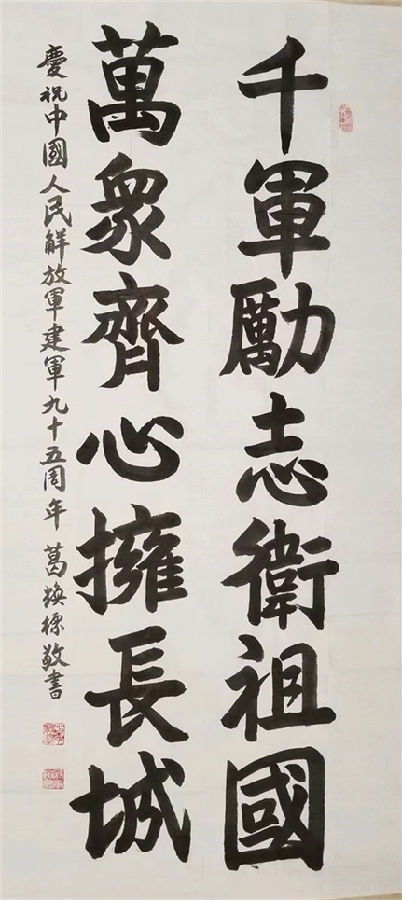 千軍勵志衛祖國
萬眾齊心擁長城
慶祝中國人民解放軍建軍九十五周年 葛煥標敬書